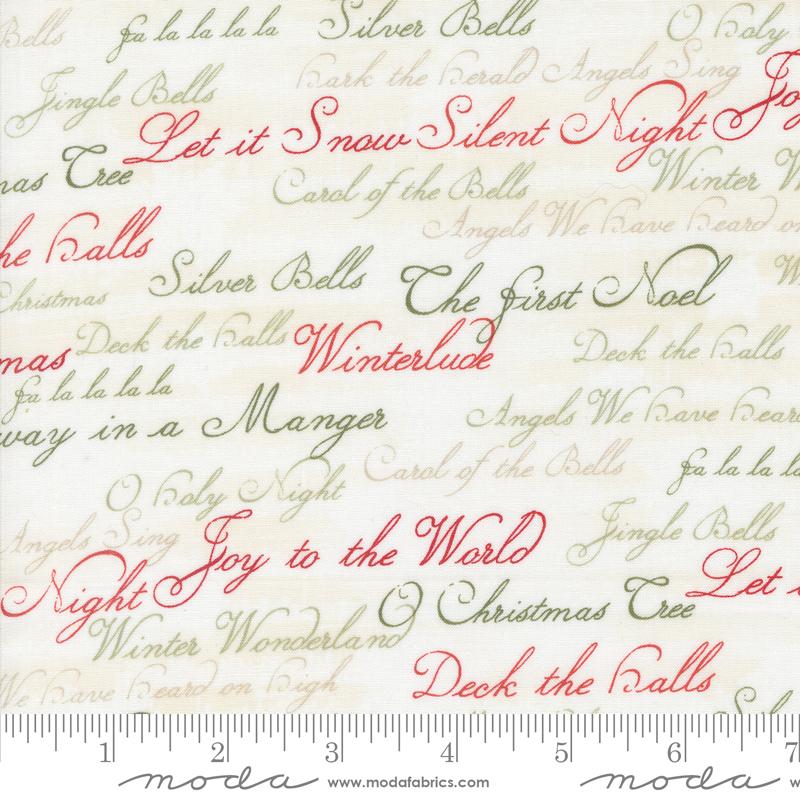 Bells fa la la la la Silver Bells O holy
Jingle Bells hark the herald Angels Sing Joy
Let it Snow Silent Night
mas Tree Carol of the Bells Winter W
Angels We have heard on
he halls
Silver Bells The first Noel W
Christmas
Deck the halls Winterlude Deck the halls
mas
fa la la la la
way in a Manger Angels We have heard
Carol of the Bells fa la la la
O holy Night
Angels Sing Joy to the World Jingle Bells
Night O Christmas Tree Let i
Winter Wonderland
We have heard on high Deck the halls
1 2 3 4 5 6 7
moda www.modafabrics.com moda w